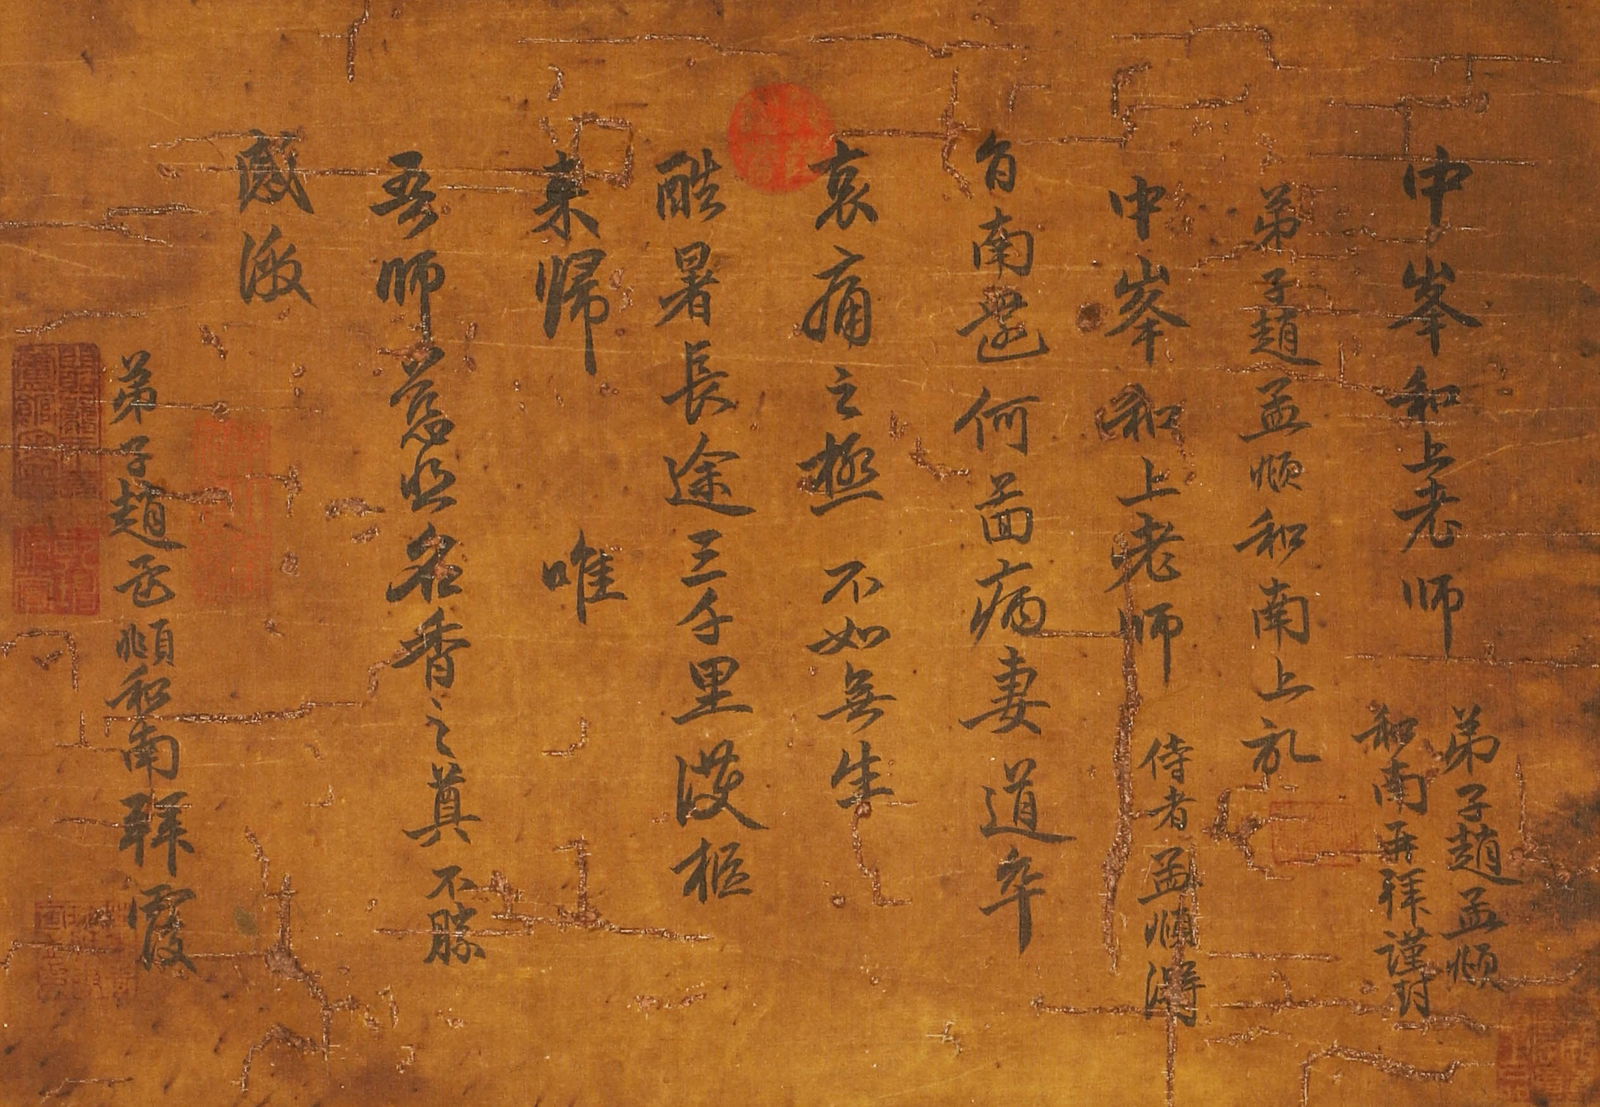 中峯和上老师
弟子趙孟頫
和南再拜謹封
弟子趙孟頫和南上記
中峯和上老师 侍者孟頫得
旨南還何啚病妻道卒
哀痛之極不如無生
酷暑長途三千里護柩
来归 唯
吾师慈悲名香之奠不勝
感激
弟子趙孟頫和南拜覆